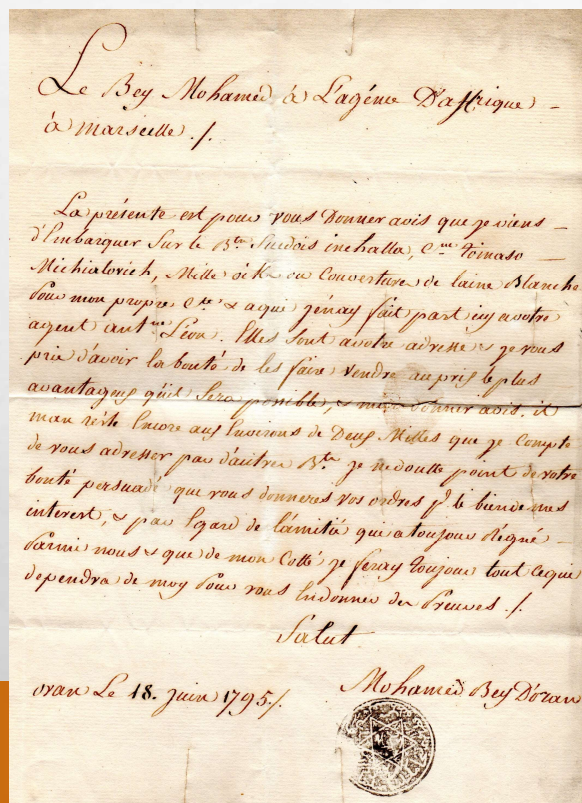 Le Bey Mohamed à L'agence D'affrique
à Marseille ./.
La présente est pour vous Donner avis que je viens
d'Embarquer Sur le B.tn Suedois inchalla, C.ne Tomaso
Michialovich, Mille ou Couverture de laine Blanche
Pour mon propre C.te & a que j'en ay fait part icy a votre
agent ant.ne Léon. Elles Sont a votre adresse & je vous
prie d'avoir la bonté de les faire vendre au pris le plus
avantageus qu'il Sera possible, & m'en donner avis. il
m'an réste Encore aus Environs de Deus Milles que je Compte
de vous adresser par d'autres B.tn je ne doutte point de votre
bonté persuadé que vous donneres vos ordres p.r le bien de mes
interest, & par Egard de l'amitié qui a toujour Régné
Parmi nous & que de mon Cotté je feray toujour tout ce qui
dependra de moy Pour vous En donner des Preuves ./.
Salut
oran Le 18. Juin 1795 ./.
Mohamed Bey D'oran